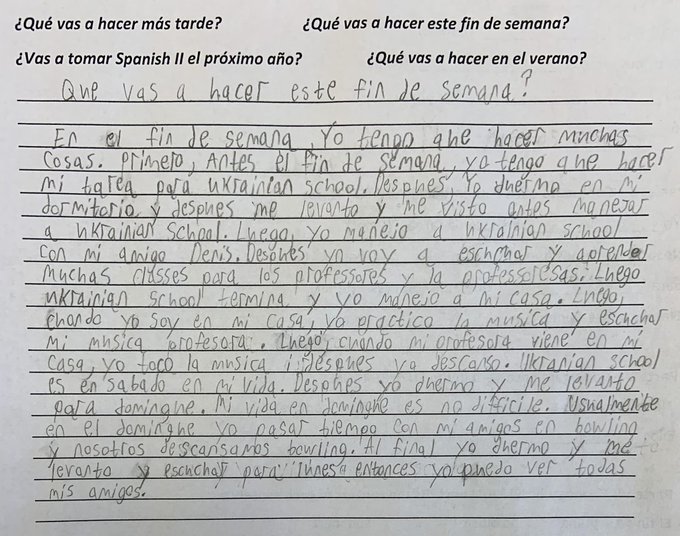 ¿Qué vas a hacer más tarde? ¿Qué vas a hacer este fin de semana?
¿Vas a tomar Spanish II el próximo año? ¿Qué vas a hacer en el verano?
Que vas a hacer este fin de semana?
En el fin de semana, Yo tengo que hacer muchas
cosas. Primero, Antes el fin de semana, yo tengo que hacer
mi tarea para ukrainian school. Despues, Yo duermo en mi
dormitorio y despues me levanto y me visto antes manejar
a ukrainian school. Luego, yo manejo a ukrainian school
con mi amigo Denis. Despues yo voy a eschchar y aprender
muchas classes para los professores y la professoresas. Luego
ukrainian school termina y yo manejo a mi casa. Luego,
cuando yo soy en mi casa, yo practico la musica y eschchar
mi musica profesora. Luego, cuando mi profesora viene en mi
casa, yo toco la musica i despues yo descanso. Ukranian school
es en sabado en mi vida. Despues yo duermo y me levanto
para domingue. Mi vida en domingue es no difficile. Usualmente
en el domingue yo pasar tiempo con mi amigos en bowling
y nosotros descansamos bowling. Al final yo duermo y me
levanto y eschchar para lunes entonces yo puedo ver todas
mis amigos.